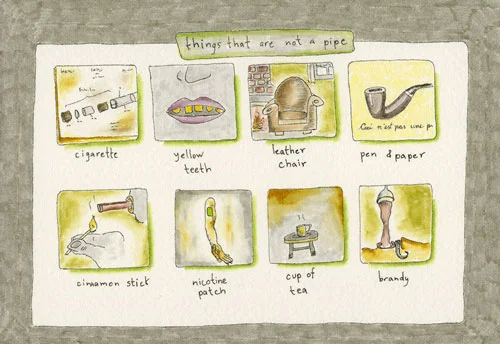 things that are not a pipe
cigarette
yellow
teeth
leather
chair
Ceci n'est pas une p
pen & paper
cinnamon stick
nicotine
patch
cup of
tea
brandy